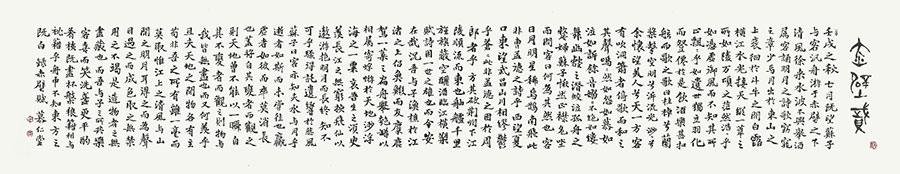 赤壁賦
壬戌之秋七月既望蘇子
與客泛舟游赤壁之下
清風徐來水波不興舉酒
屬客誦明月之詩歌窈窕
之章少焉月出於東山之
上徘徊於斗牛之間白露
橫江水光接天縱一葦之
所如凌萬頃之茫然浩浩乎
如馮虛御風而不知其所
止飄飄乎如遺世獨立羽化
而登仙於是飲酒樂甚扣
舷而歌之歌曰桂棹兮蘭
槳擊空明兮溯流光渺渺兮
余懷望美人兮天一方客
有吹洞簫者倚歌而和之
其聲嗚嗚然如怨如慕如
泣如訴餘音嫋嫋不絕如縷
舞幽壑之潛蛟泣孤舟之
嫠婦蘇子愀然正襟危坐
而問客曰何爲其然也客
曰月明星稀烏鵲南飛此
非曹孟德之詩乎西望夏
口東望武昌山川相繆鬱
乎蒼蒼此非孟德之困於周
郎者乎方其破荊州下江
陵順流而東也舳艫千里
旌旗蔽空釃酒臨江橫槊
賦詩固一世之雄也而今安
在哉況吾與子漁樵於江
渚之上侶魚蝦而友麋鹿
駕一葉之扁舟舉匏樽以
相屬寄蜉蝣於天地渺滄
海之一粟哀吾生之須臾
羨長江之無窮挾飛仙以
遨遊抱明月而長終知不
可乎驟得託遺響於悲風
蘇子曰客亦知夫水與月乎
逝者如斯而未嘗往也盈
虛者如彼而卒莫消長
也蓋將自其變者而觀之
則天地曾不能以一瞬自
其不變者而觀之則物與
我皆無盡也而又何羨乎
且夫天地之間物各有主
苟非吾之所有雖一毫而
莫取惟江上之清風與山
間之明月耳得之而爲聲
目遇之而成色取之無禁
用之不竭是造物者之無
盡藏也而吾與子之所共樂
客喜而笑洗盞更酌
肴核既盡杯盤狼藉相與
枕藉乎舟中不知東方之
既白 錄赤壁賦 仁堂